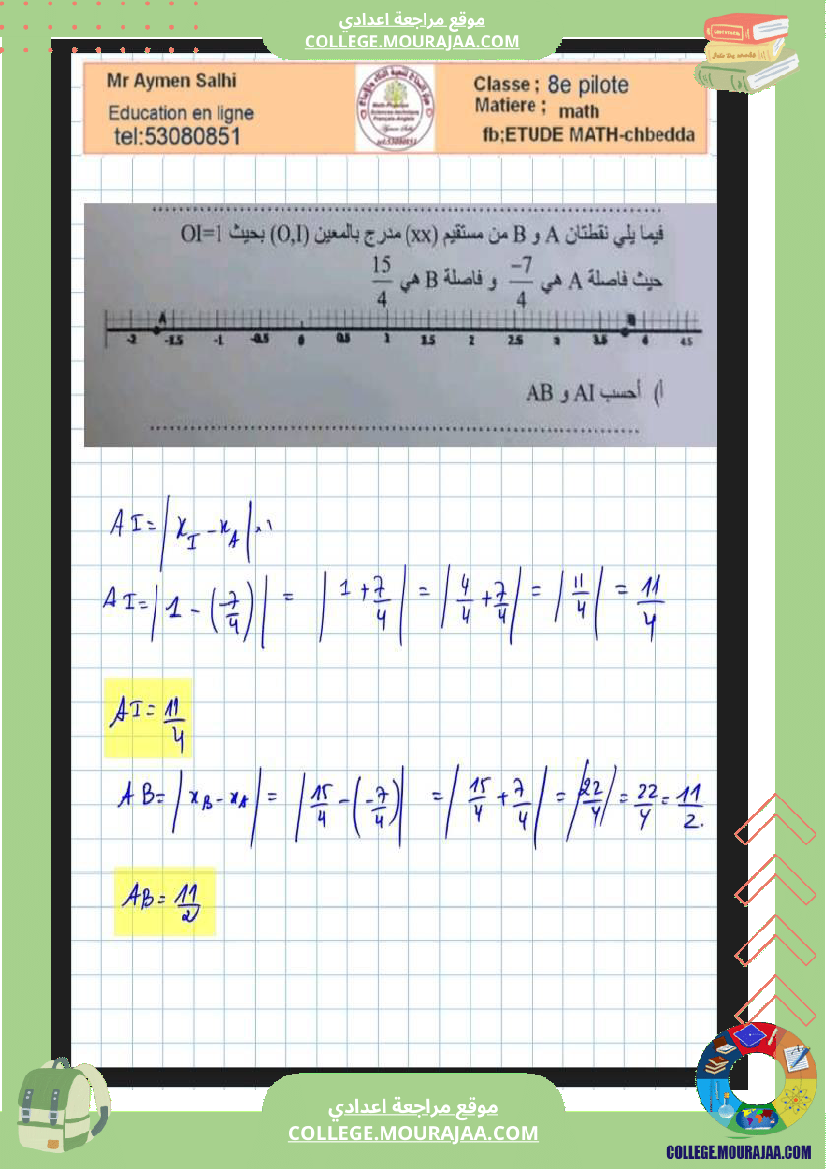 موقع مراجعة اعدادي
COLLEGE.MOURAJAA.COM
Mr Aymen Salhi
Education en ligne
tel:53080851
Classe ; 8e pilote
Matiere ; math
fb;ETUDE MATH-chbedda
فيما يلي نقطتان A و B من مستقيم (xx) مدرج بالمعين (O,I) بحيث OI=1
حيث فاصلة A هي -7/4 و فاصلة B هي 15/4
A B
-2 -1.5 -1 -0.5 0 0.5 1 1.5 2 2.5 3 3.5 4 4.5
أ) أحسب AI و AB
AI = |x_I - x_A| × 1
AI = |1 - (-7/4)| = |1 + 7/4| = |4/4 + 7/4| = |11/4| = 11/4
AI = 11/4
AB = |x_B - x_A| = |15/4 - (-7/4)| = |15/4 + 7/4| = |22/4| = 22/4 = 11/2.
AB = 11/2
موقع مراجعة اعدادي
COLLEGE.MOURAJAA.COM
COLLEGE.MOURAJAA.COM